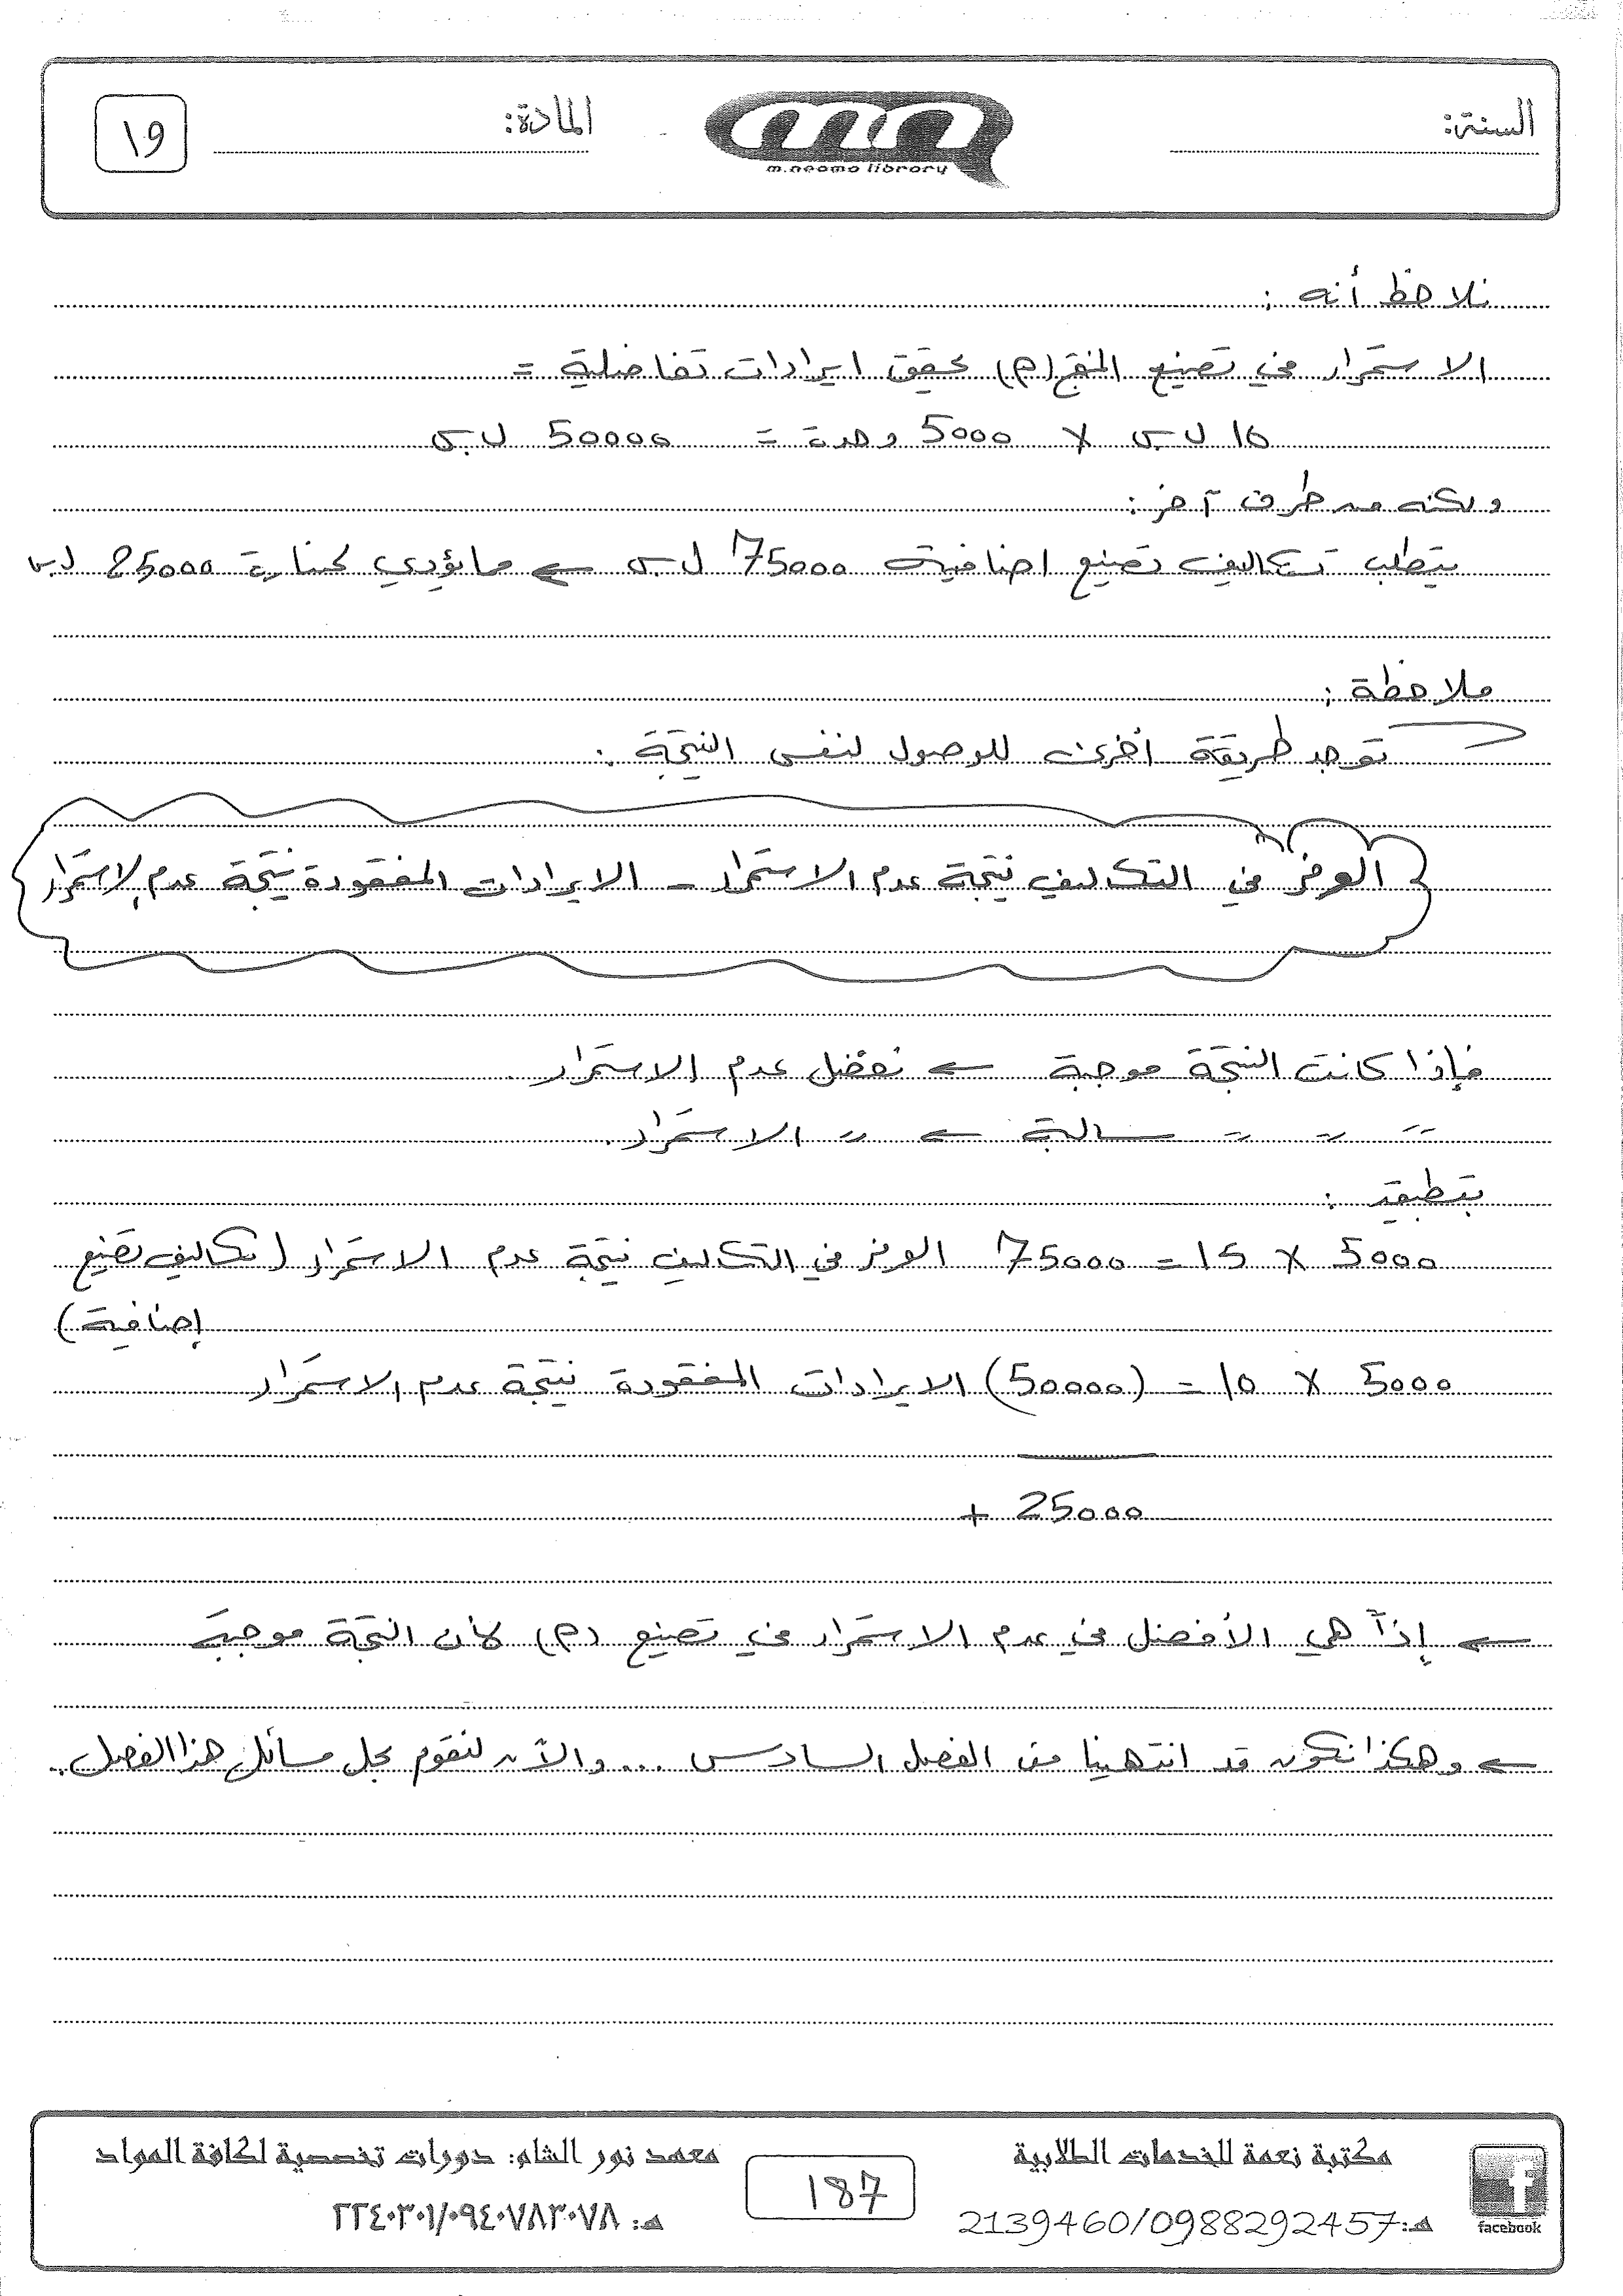 السنة:
m.neama library
المادة:
١٩
نلاحظ أنه :
الاستمرار في تصنيع المنتج (م) يحقق ايرادات تفاضلية =
10 ل.س × 5000 وحدة = 50000 ل.س
ولكنه من طرف آخر :
يتطلب تكاليف تصنيع اضافية 75000 ل.س ← مايؤدي لخسارة 25000 ل.س
ملاحظة :
توجد طريقة أخرى للوصول لنفس النتيجة :
الوفر في التكاليف نتيجة عدم الاستمرار - الايرادات المفقودة نتيجة عدم الاستمرار
فإذا كانت النتيجة موجبة ← نفضل عدم الاستمرار
= = = سالبة ← = الاستمرار.
بتطبيقه :
5000 × 15 = 75000 الوفر في التكاليف نتيجة عدم الاستمرار (تكاليف تصنيع
إضافية)
5000 × 10 = (50000) الايرادات المفقودة نتيجة عدم الاستمرار
25000 +
← إذاً هي الأفضل في عدم الاستمرار في تصنيع (م) لأن النتيجة موجبة
← وهكذا نكون قد انتهينا من الفصل السادس ... والآن لنقوم بحل مسائل هذا الفصل ..
مكتبة نعمة للخدمات الطلابية
هـ: 2139460/0988292457
facebook
187
معهد نور الشام: دورات تخصصية لكافة المواد
هـ: ٢٢٤٠٣٠١/٠٩٤٠٧٨٣٠٧٨